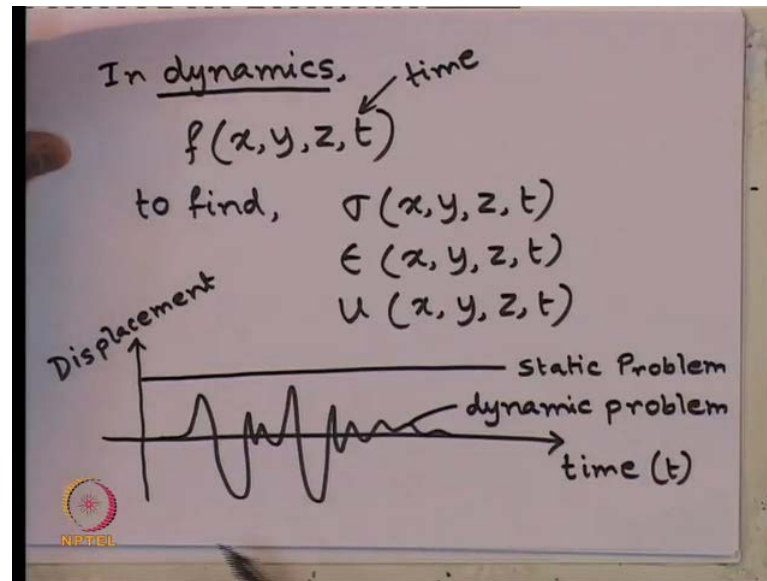 In dynamics,
time
f(x, y, z, t)
to find, σ(x, y, z, t)
ϵ (x, y, z, t)
u (x, y, z, t)
Displacement
static Problem
dynamic problem
time (t)
NPTEL